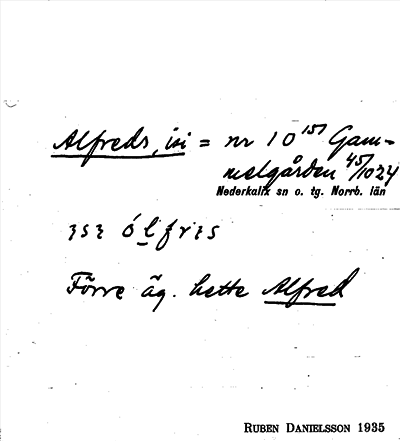 Alfreds, isi = nr 10¹⁵¹ Gam-
melgården 45/1024
Nederkalix sn o. tg. Norrb. län
ólfrıs
Förre äg. hette Alfred
RUBEN DANIELSSON 1935